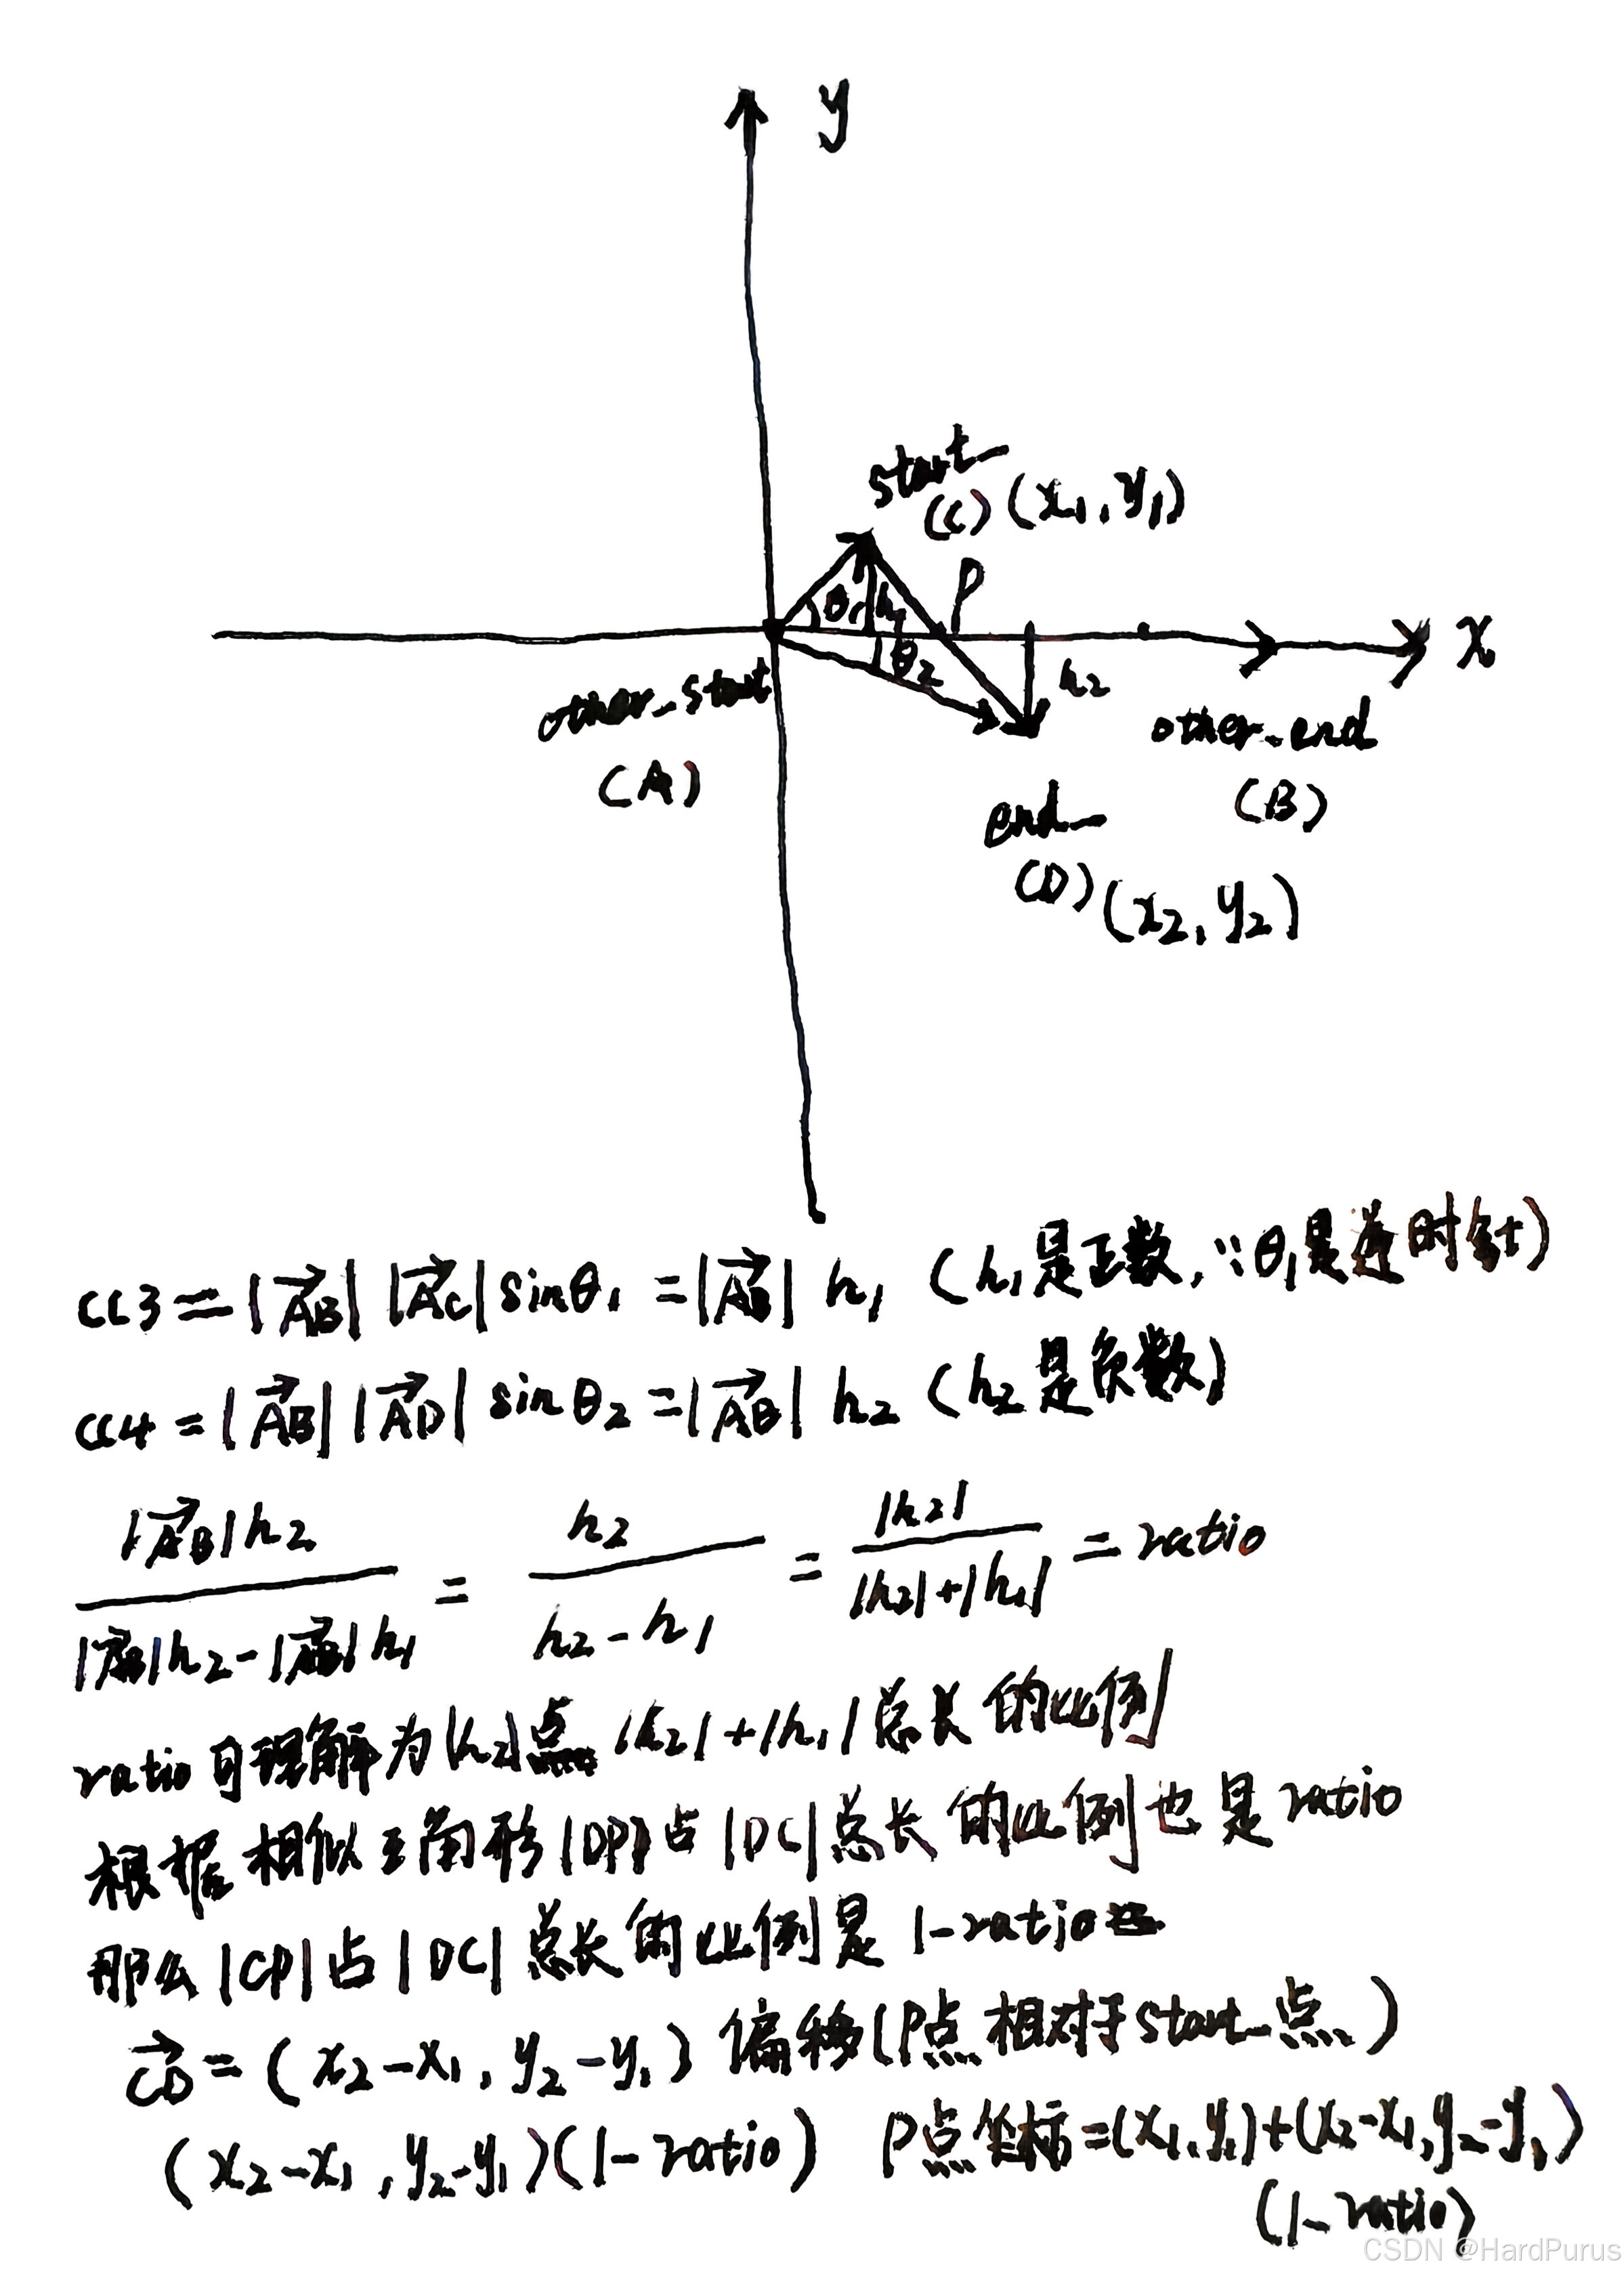 y
start_
(C) (x₁, y₁)
P
θ₁ h₁
x
θ₂
h₂
other_start
(A)
other_end
(B)
end_
(D) (x₂, y₂)
cc3 = |AB| |AC| sinθ₁ = |AB| h₁ (h₁是正数, ∵θ₁是逆时针)
cc4 = |AB| |AD| sinθ₂ = |AB| h₂ (h₂是负数)
|AB|h₂ / |AB|h₂-|AB|h₁ = h₂ / h₂-h₁ = |h₂| / |h₂|+|h₁| = ratio
ratio可理解为|h₂|占 |h₂|+|h₁|总长的比例
根据相似三角形|DP|占|DC|总长的比例也是ratio
那么|CP|占|DC|总长的比例是 1-ratio
CD = (x₂-x₁, y₂-y₁) 偏移(P点相对于start_点)
(x₂-x₁, y₂-y₁)(1-ratio) P点坐标=(x₁,y₁)+(x₂-x₁,y₂-y₁)
(1-ratio)
CSDN @HardPurus